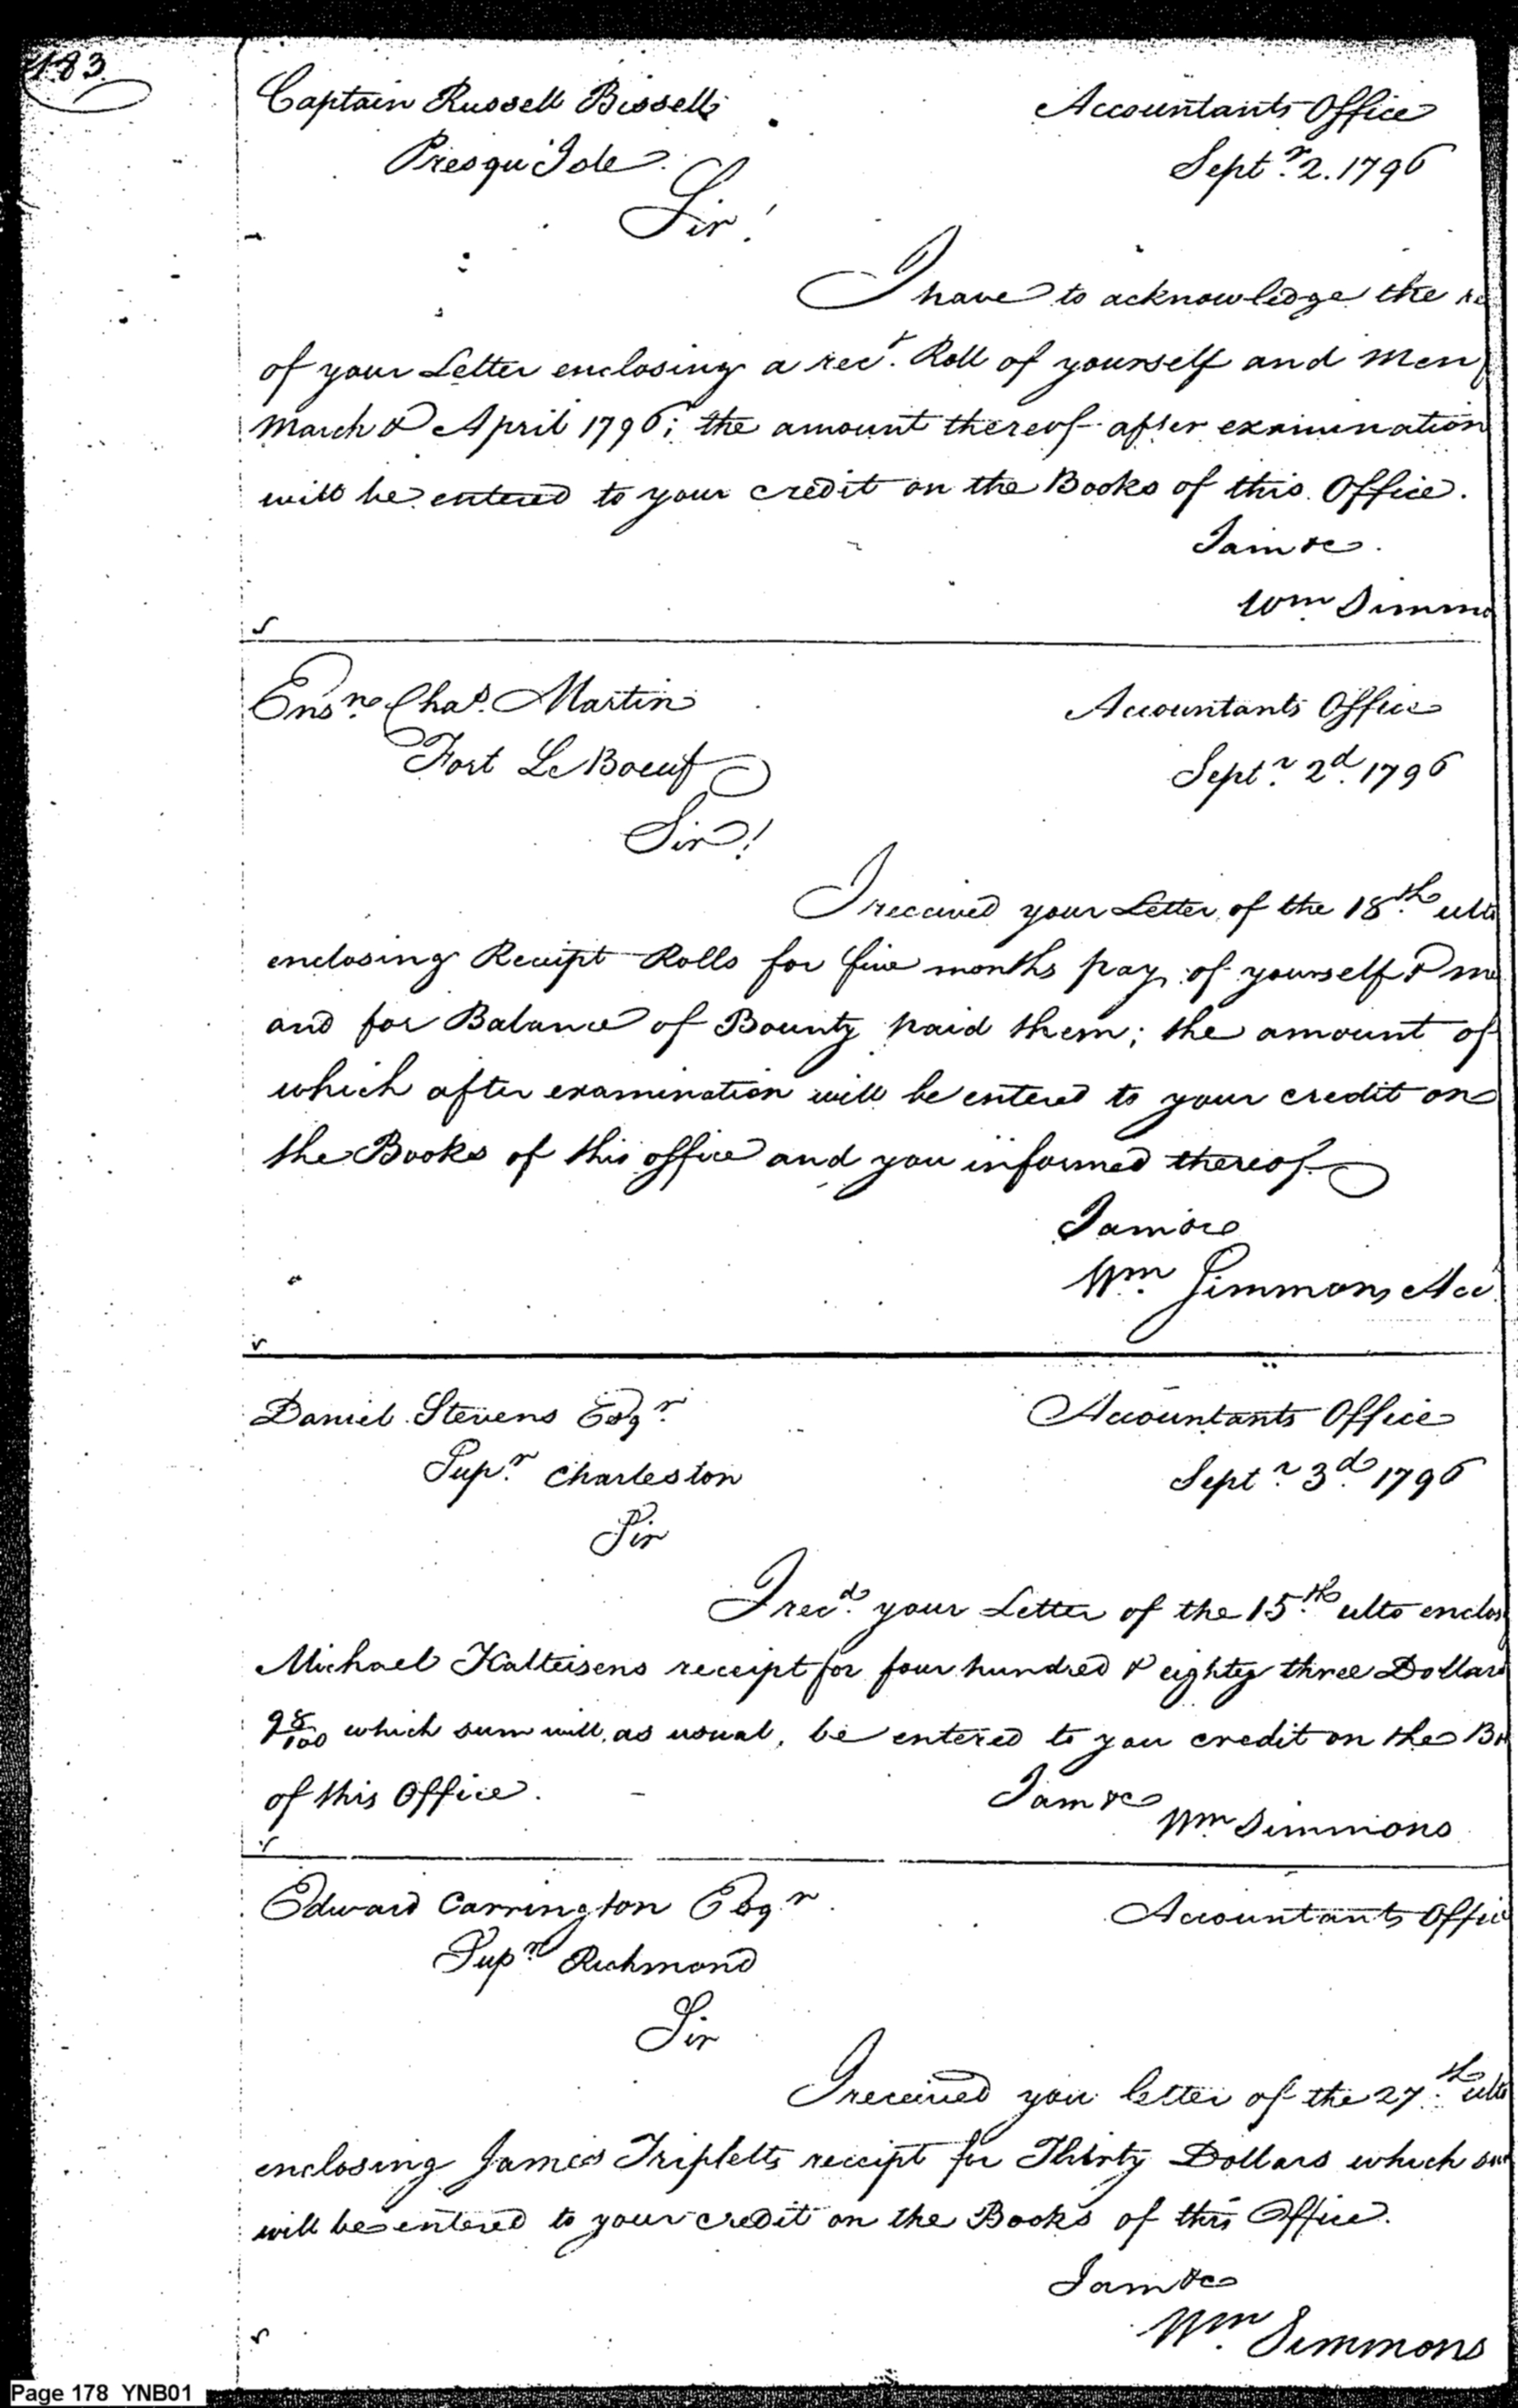 183
Captain Russell Bissell
Accountants Office
Presqu'Isle
Septr. 2. 1796
Sir!
I have to acknowledge the re
of your Letter enclosing a rect. Roll of yourself and men
March & April 1796; the amount thereof after examination
will be entered to your credit on the Books of this Office.
I am &c.
Wm Simmo
Ensn. Chas. Martin
Accountants Office
Fort Le Boeuf
Septr. 2d. 1796
Sir!
I received your Letter of the 18th. ulto
enclosing Receipt Rolls for five months pay of yourself & me
and for Balance of Bounty paid them; the amount of
which after examination will be entered to your credit on
the Books of this office and you informed thereof
I am &c
Wm. Simmons Acct
Daniel Stevens Esqr.
Accountants Office
Supr. Charleston
Septr. 3d. 1796
Sir
I recd. your Letter of the 15th. ulto enclos
Michael Kalteisens receipt for four hundred & eighty three Dollars
98/100 which sum will, as usual, be entered to you credit on the Bo
of this Office.
I am &c
Wm. Simmons
Edward Carrington Esqr.
Accountants Offic
Supr. Richmond
Sir
I received you letter of the 27th. ulto
enclosing James Tripletts receipt for Thirty Dollars which su
will be entered to your credit on the Books of this Office.
I am &c
Wm. Simmons
Page 178 YNB01